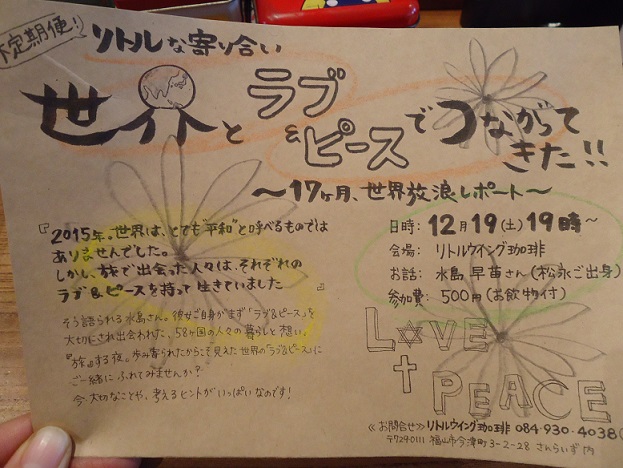 不定期便!
リトルな寄り合い
世界とラブ&ピースでつながってきた!!
〜17ヶ月、世界放浪レポート〜
『2015年。世界は、とても"平和"と呼べるものでは
ありませんでした。
しかし、旅で出会った人々は、それぞれの
ラブ&ピースを持って生きていました』
そう語られる水島さん。彼女ご自身がまず「ラブ&ピース」を
大切にされ出会われた、58ヶ国の人々の暮らしと想い。
『旅』する夜。歩み寄られたからこそ見えた世界の「ラブ&ピース」に
ご一緒に ふれてみませんか?
今、大切なことや、考えるヒントがいっぱいなのです!
日時: 12月19(土) 19時〜
会場: リトルウイング珈琲
お話: 水島 早苗さん (松永ご出身)
参加費: 500円 (お飲物付)
LOVE
PEACE
≪お問合せ≫ リトルウイング珈琲 084-930-4038
〒729-0111 福山市今津町3-2-28 さんらいず内